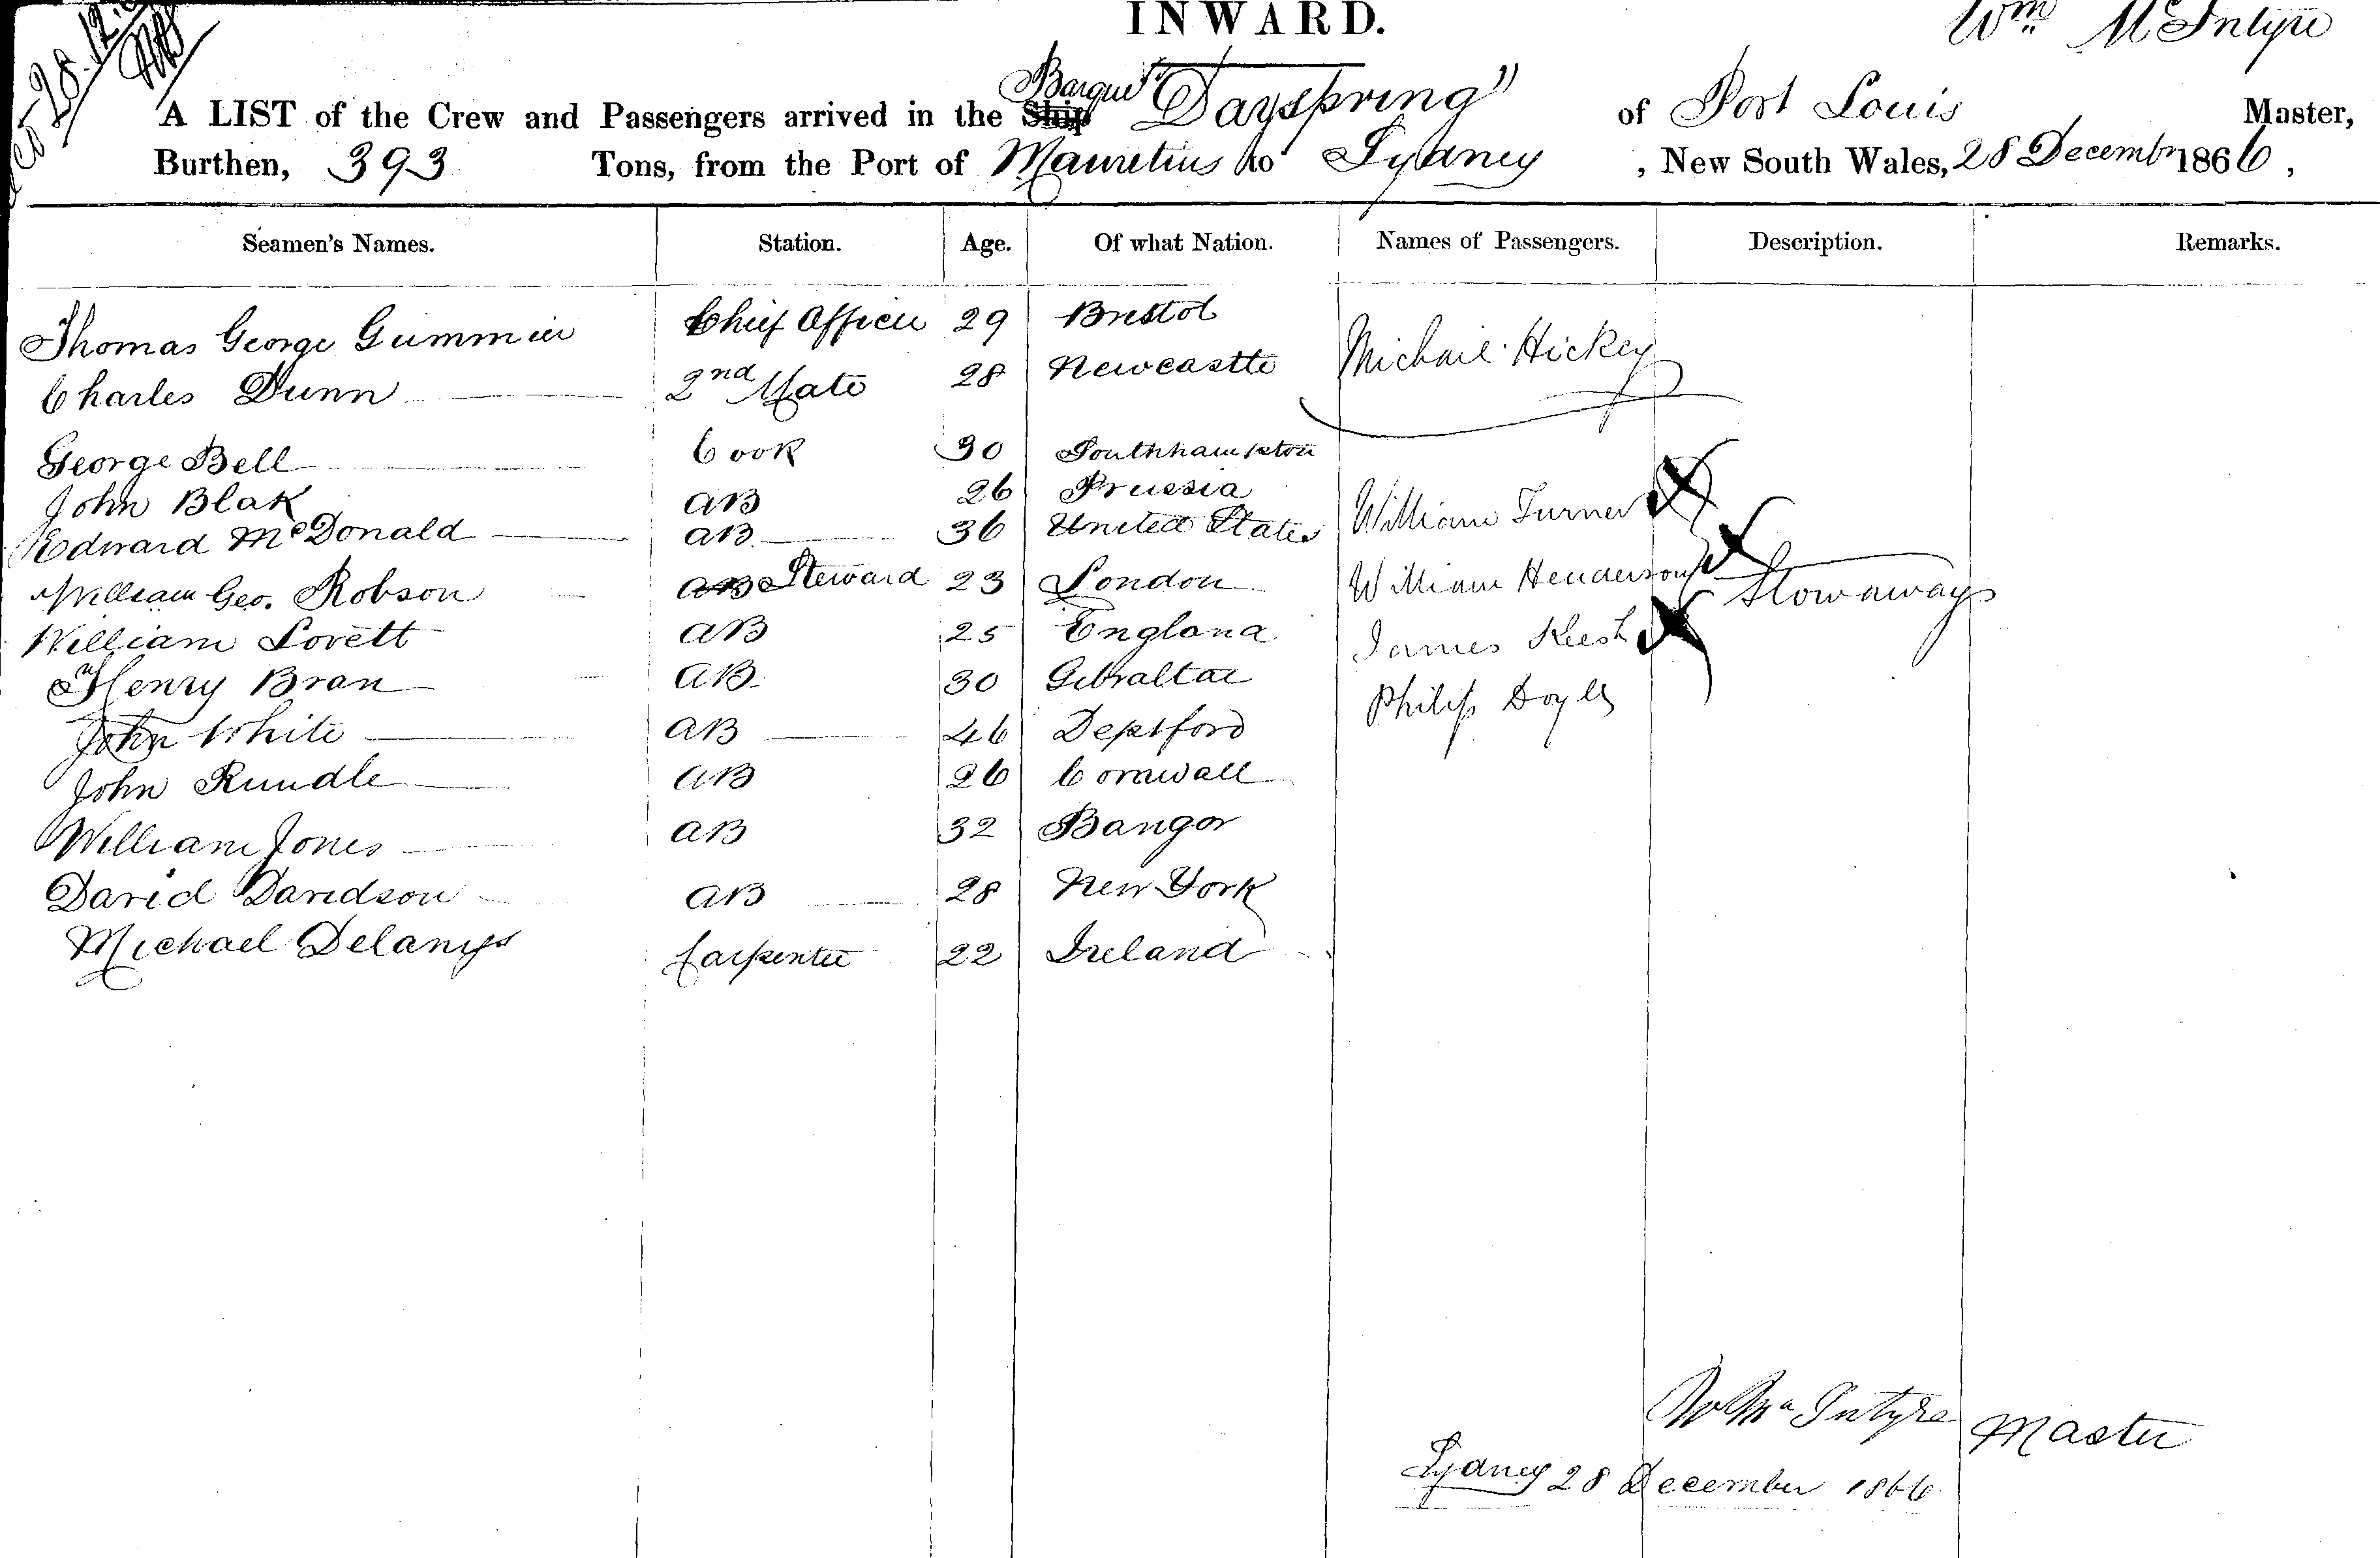 INWARD.
Wm McIntyre
28.12.
A LIST of the Crew and Passengers arrived in the Ship Barque "Dayspring" of Port Louis Master,
Burthen, 393 Tons, from the Port of Mauretius to Sydney , New South Wales, 28 Decembr 1866 ,
Seamen's Names. Station. Age. Of what Nation. Names of Passengers. Description. Remarks.
Thomas George Gummer Chief Officer 29 Bristol
Michail Hickey
Charles Dunn 2nd Mate 28 Newcastle
George Bell Cook 30 Southhampton
John Blak AB 26 Prussia
William Turner
Edward McDonald AB 36 United States
William Geo. Robson AB Steward 23 London William Henderson Stowaways
William Lovett AB 25 England James
Henry Bran AB 30 Gibraltar Philip Doyle
John White AB 46 Deptford
John Rundle AB 26 Cornwall
William Jones AB 32 Bangor
David Davidson AB 28 New York
Michael Delany Carpenter 22 Ireland
Wm McIntyre Master
Sydney 28 December 1866